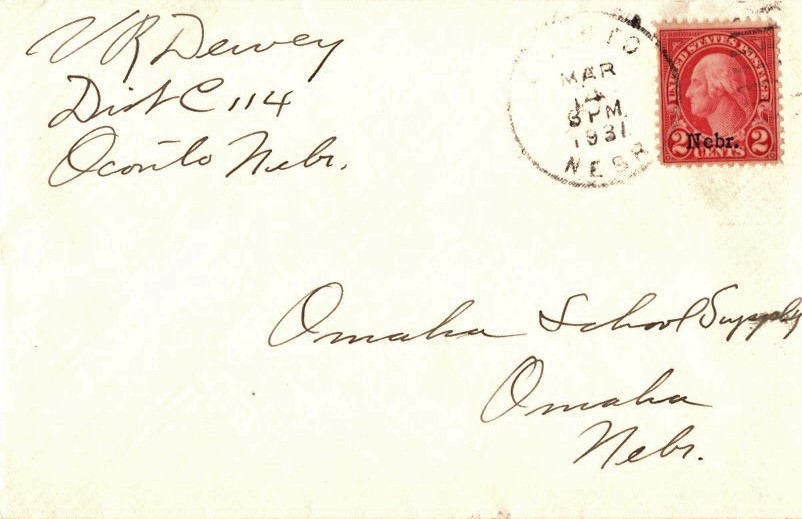 V R Dewey
Dist C 114
Oconto Nebr.
MAR
14
6 PM
1931
NEBR
UNITED STATES POSTAGE
Nebr.
2 CENTS 2
Omaha School Supply
Omaha
Nebr.